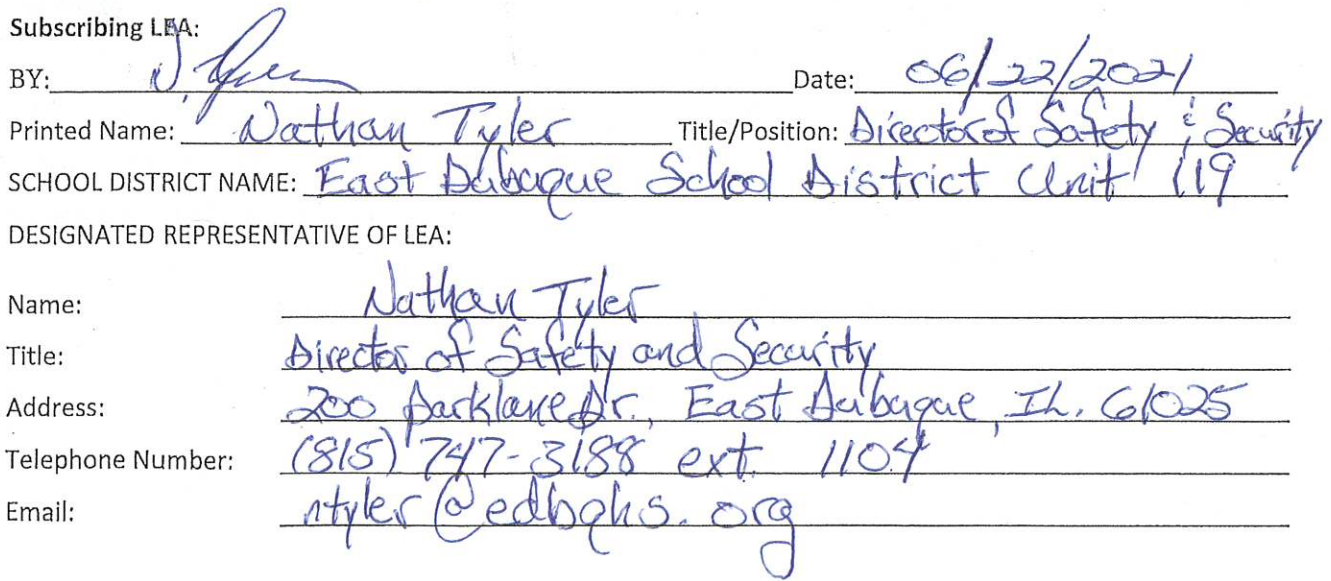 Subscribing LEA:
BY: Date: 06/22/2021
Printed Name: Nathan Tyler Title/Position: Director of Safety & Security
SCHOOL DISTRICT NAME: East Dubuque School District Unit 119
DESIGNATED REPRESENTATIVE OF LEA:
Name: Nathan Tyler
Title: Director of Safety and Security
Address: 200 Parklane Dr., East Dubuque, IL. 61025
Telephone Number: (815) 747-3188 ext. 1104
Email: ntyler@edbqhs.org